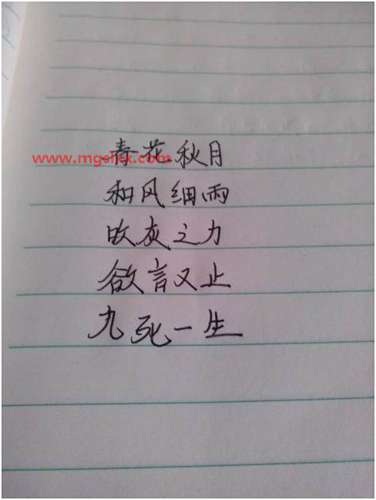 春花秋月
www.mgslsx.com
和风细雨
吹灰之力
欲言又止
九死一生